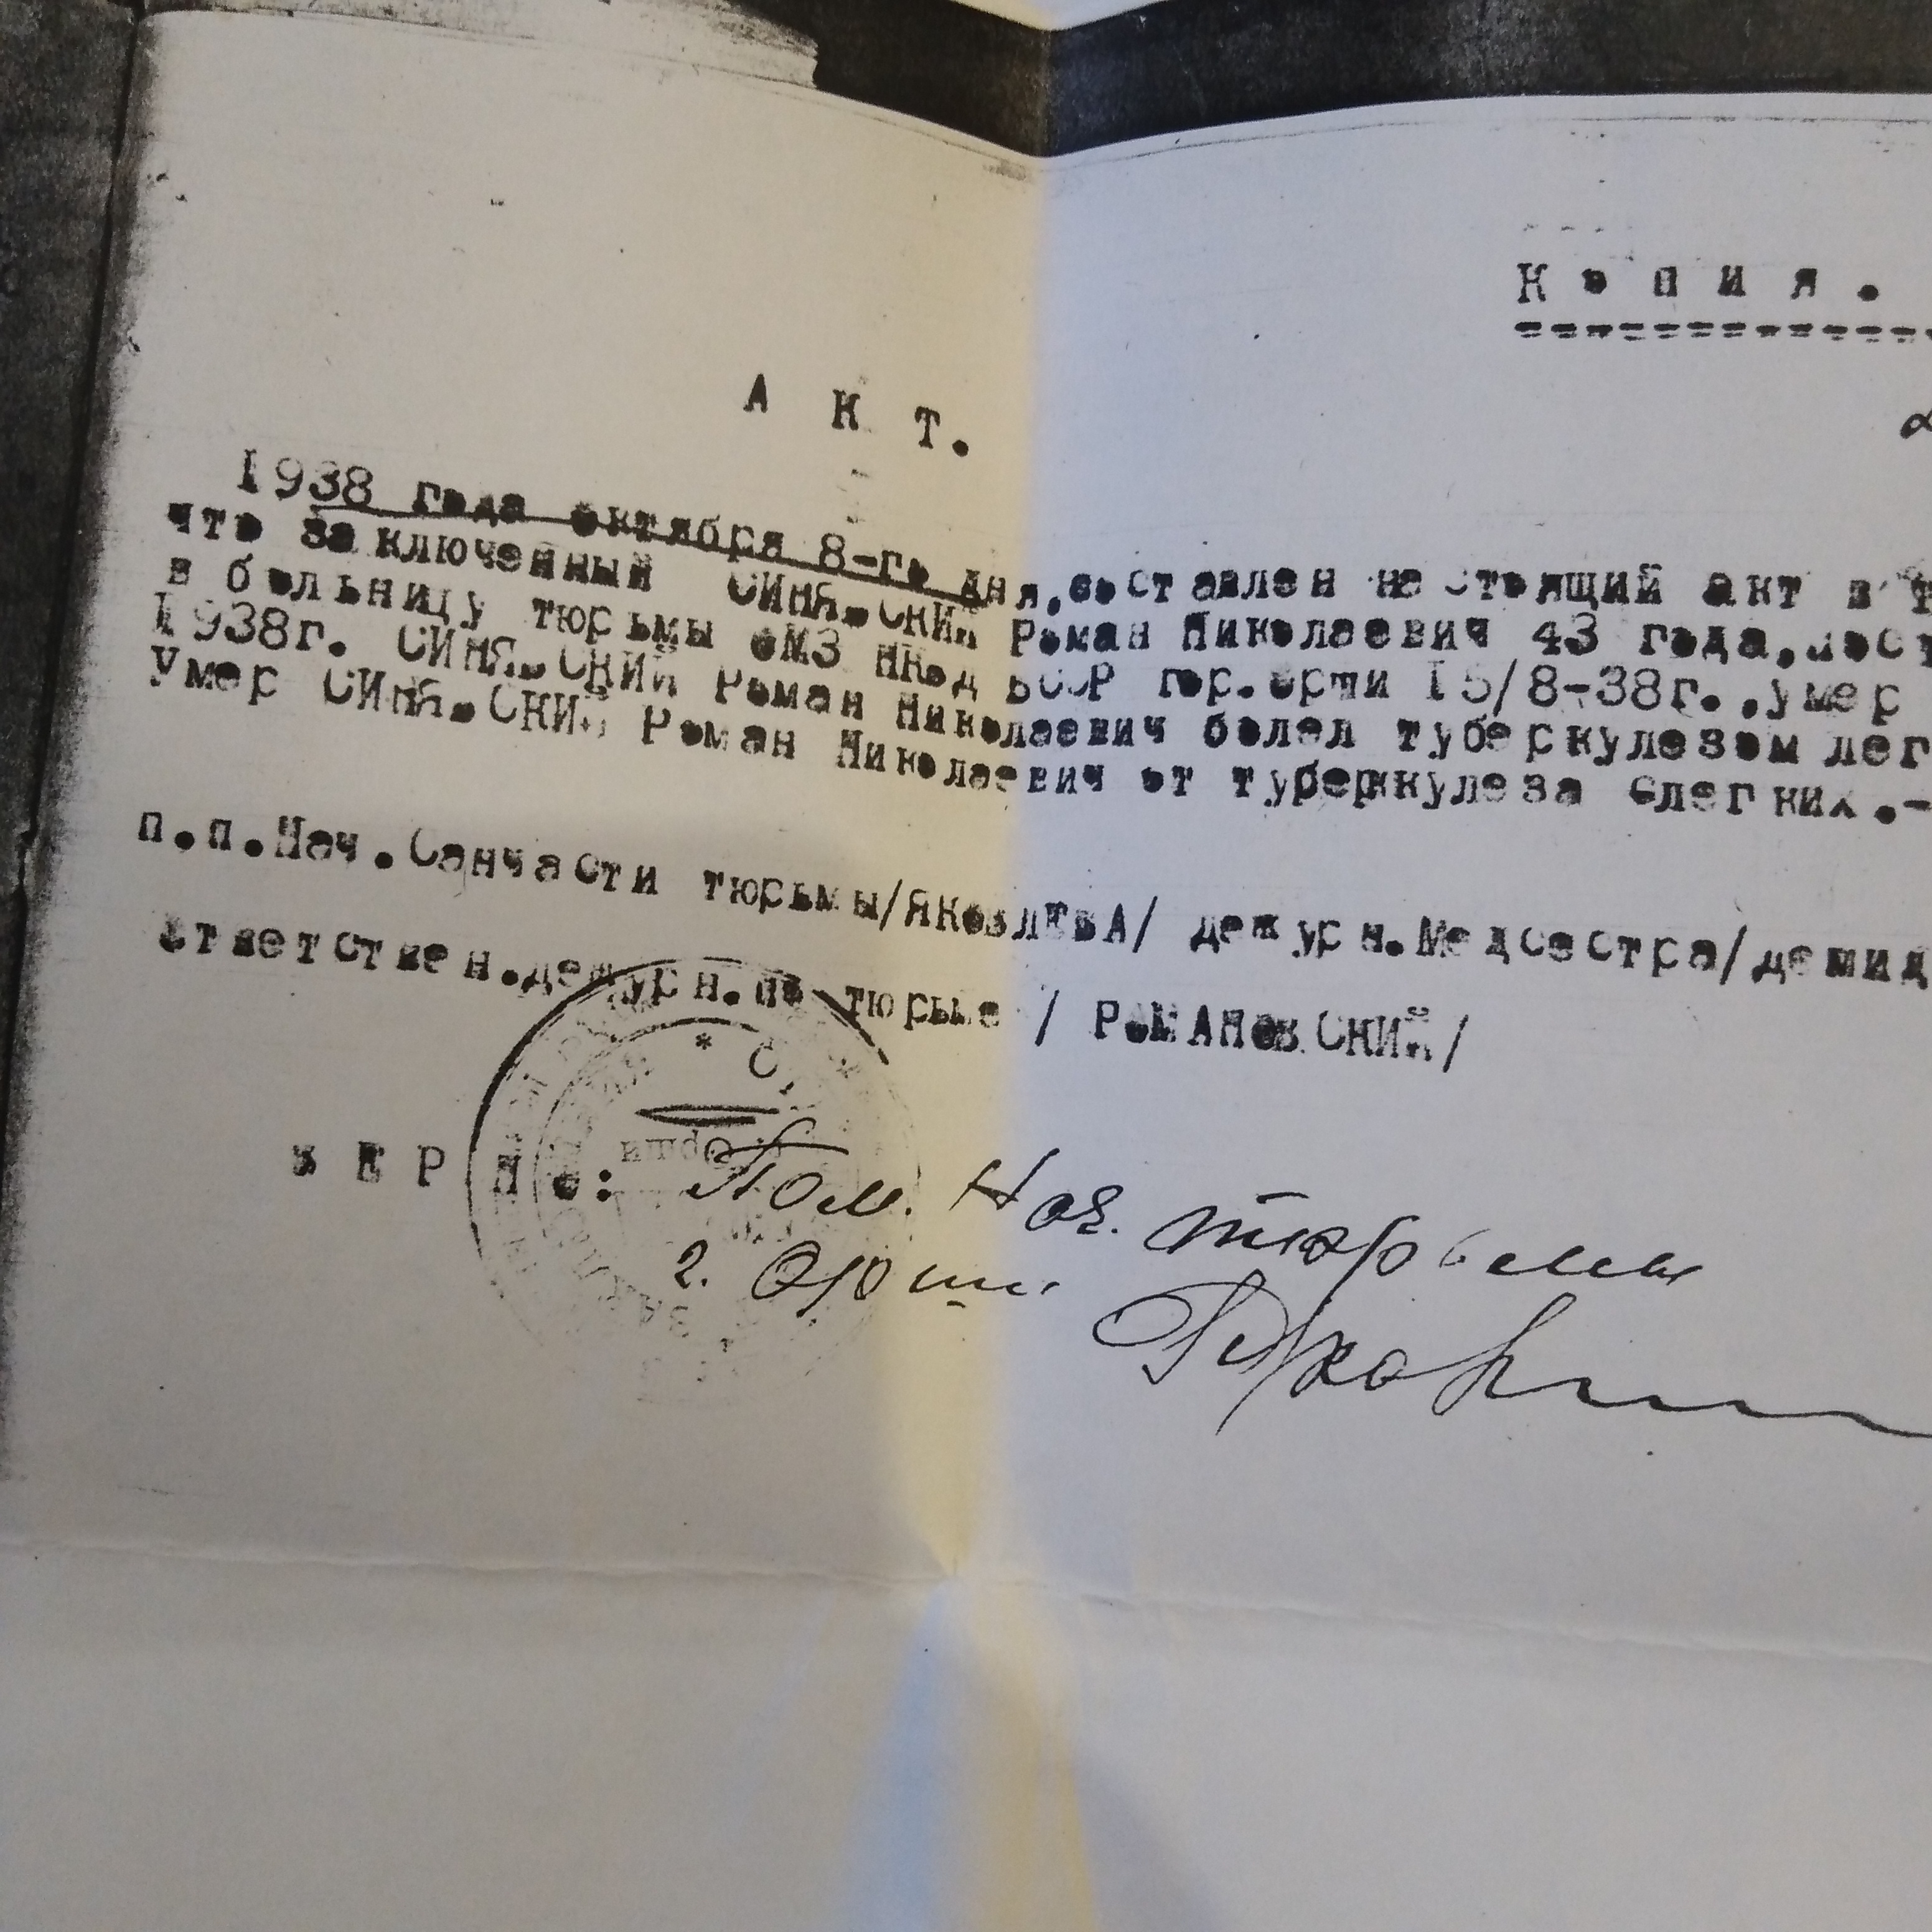 Копия.
А К Т.
1938 года октября 8-го дня, составлен настоящий акт в
что заключенный СИНЯВСКИЙ Роман Николаевич 43 года,
в больницу тюрьмы ОМЗ НКВД БССР гор.Орши 15/8-38г., умер
1938г. СИНЯВСКИЙ Роман Николаевич болел туберкулезом лег
Умер СИНЯВСКИЙ Роман Николаевич от туберкулеза легких.-
п.п.Нач.Санчасти тюрьмы/ЯКОВЛЕВА/ дежурн.Медсестра/демид
Ответствен.дежурн.по тюрьме / РОМАНОВСКИЙ/
ВЕРНО: Пом. Нач. тюрьмы
г. Орши